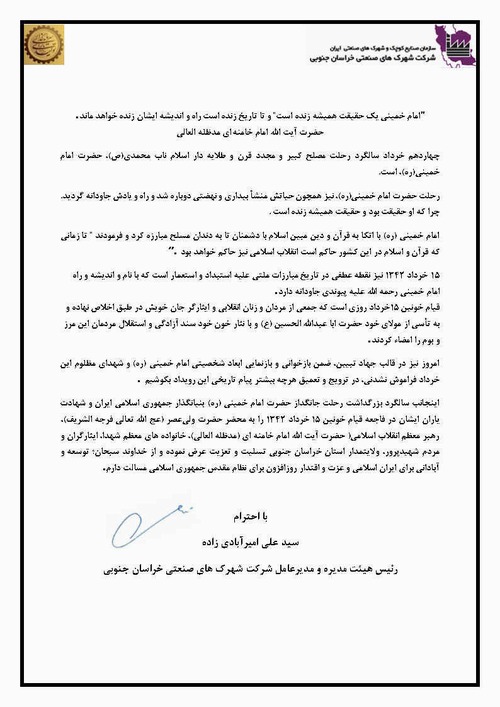 سازمان صنایع کوچک و شهرک های صنعتی ایران
شرکت شهرک های صنعتی خراسان جنوبی
"امام خمینی یک حقیقت همیشه زنده است" و تا تاریخ زنده است راه و اندیشه ایشان زنده خواهد ماند.
حضرت آیت الله امام خامنه ای مدظله العالی
چهاردهم خرداد سالگرد رحلت مصلح کبیر و مجدد قرن و طلایه دار اسلام ناب محمدی(ص)، حضرت امام
خمینی(ره)، است.
رحلت حضرت امام خمینی(ره)، نیز همچون حیاتش منشأ بیداری و نهضتی دوباره شد و راه و یادش جاودانه گردید.
چرا که او حقیقت بود و حقیقت همیشه زنده است .
امام خمینی (ره) با اتکا به قرآن و دین مبین اسلام با دشمنان تا به دندان مسلح مبارزه کرد و فرمودند " تا زمانی
که قرآن و اسلام در این کشور حاکم است انقلاب اسلامی نیز حاکم خواهد بود ."
۱۵ خرداد ۱۳۴۲ نیز نقطه عطفی در تاریخ مبارزات ملتی علیه استبداد و استعمار است که با نام و اندیشه و راه
امام خمینی رحمه الله علیه پیوندی جاودانه دارد.
قیام خونین ۱۵خرداد روزی است که جمعی از مردان و زنان انقلابی و ایثارگر جان خویش در طبق اخلاص نهاده و
به تأسی از مولای خود حضرت ابا عبدالله الحسین (ع) و با نثار خون خود سند آزادگی و استقلال مردمان این مرز
و بوم را امضاء کردند.
امروز نیز در قالب جهاد تبیین، ضمن بازخوانی و بازنمایی ابعاد شخصیتی امام خمینی (ره) و شهدای مظلوم این
خرداد فراموش نشدنی، در ترویج و تعمیق هرچه بیشتر پیام تاریخی این رویداد بکوشیم .
اینجانب سالگرد بزرگداشت رحلت جانگداز حضرت امام خمینی (ره) بنیانگذار جمهوری اسلامی ایران و شهادت
یاران ایشان در فاجعه قیام خونین ۱۵ خرداد ۱۳۴۲ را به محضر حضرت ولی‌عصر (عج الله تعالی فرجه الشریف)،
رهبر معظم انقلاب اسلامی( حضرت آیت الله امام خامنه ای (مدظله العالی)، خانواده های معظم شهدا، ایثارگران و
مردم شهیدپرور، ولایتمدار استان خراسان جنوبی تسلیت و تعزیت عرض نموده و از خداوند سبحان؛ توسعه و
آبادانی برای ایران اسلامی و عزت و اقتدار روزافزون برای نظام مقدس جمهوری اسلامی مسالت دارم.
با احترام
سید علی امیرآبادی زاده
رئیس هیئت مدیره و مدیرعامل شرکت شهرک های صنعتی خراسان جنوبی